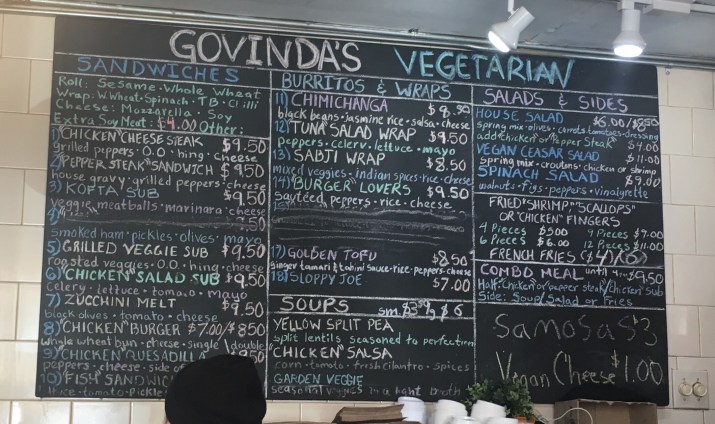 GOVINDA'S VEGETARIAN
SANDWICHES
Roll: Sesame · Whole Wheat
Wrap: W.Wheat · Spinach · TB ·
Cheese: Mozzarella · Soy
Extra Soy Meat: $4.00 Other:
1) "CHICKEN" CHEESE STEAK $9.50
grilled peppers · O.O · hing · cheese
2) "PEPPER STEAK" SANDWICH $9.50
house gravy · grilled peppers · cheese
3) KOFTA SUB $9.50
veggie meatballs · marinara · cheese
4)
smoked ham · pickles · olives · mayo
5) GRILLED VEGGIE SUB $9.50
roasted veggies · O.O · hing · cheese
6) "CHICKEN" SALAD SUB $9.50
celery · lettuce · tomato · mayo
7) ZUCCHINI MELT $9.50
black olives · tomato · cheese
8) "CHICKEN" BURGER $7.00/$8.50
whole wheat bun · cheese · single/double
9) "CHICKEN" QUESADILLA
peppers · cheese · side of
10) "FISH" SANDWIC
tomato · pickle
BURRITOS & WRAPS
11) CHIMICHANGA
black beans · jasmine rice · salsa · cheese
12) "TUNA" SALAD WRAP $9.50
peppers · celery · lettuce · mayo
13) SABJI WRAP $8.50
mixed veggies · indian spices · rice · cheese
14) "BURGER" LOVERS $9.50
Sautéed peppers · rice · cheese
17) GOLDEN TOFU $8.50
ginger tamari & tahini sauce · rice · peppers · cheese
18) SLOPPY JOE $7.00
SOUPS sm. lg $6
YELLOW SPLIT PEA
split lentils seasoned to perfection
"CHICKEN" SALSA
corn · tomato · fresh cilantro · spices
GARDEN VEGGIE
seasonal veggies in a light broth
SALADS & SIDES
HOUSE SALAD $6.00/$8.50
spring mix · olives · carrots · tomatoes · dressing
add "chicken" or Pepper Steak $4.00
VEGAN CEASAR SALAD $11.00
spring mix · croutons · chicken or shrimp
SPINACH SALAD $9.00
walnuts · figs · peppers · vinaigrette
FRIED "SHRIMP" "SCALLOPS"
OR "CHICKEN" FINGERS
4 Pieces $5.00 9 Pieces $7.00
6 Pieces $6.00 12 Pieces $11.00
FRENCH FRIES
COMBO MEAL until $9.50
Half: Chicken or pepper steak/Chicken Sub
Side: Soup/Salad or Fries
Samosas $3
Vegan Cheese $1.00